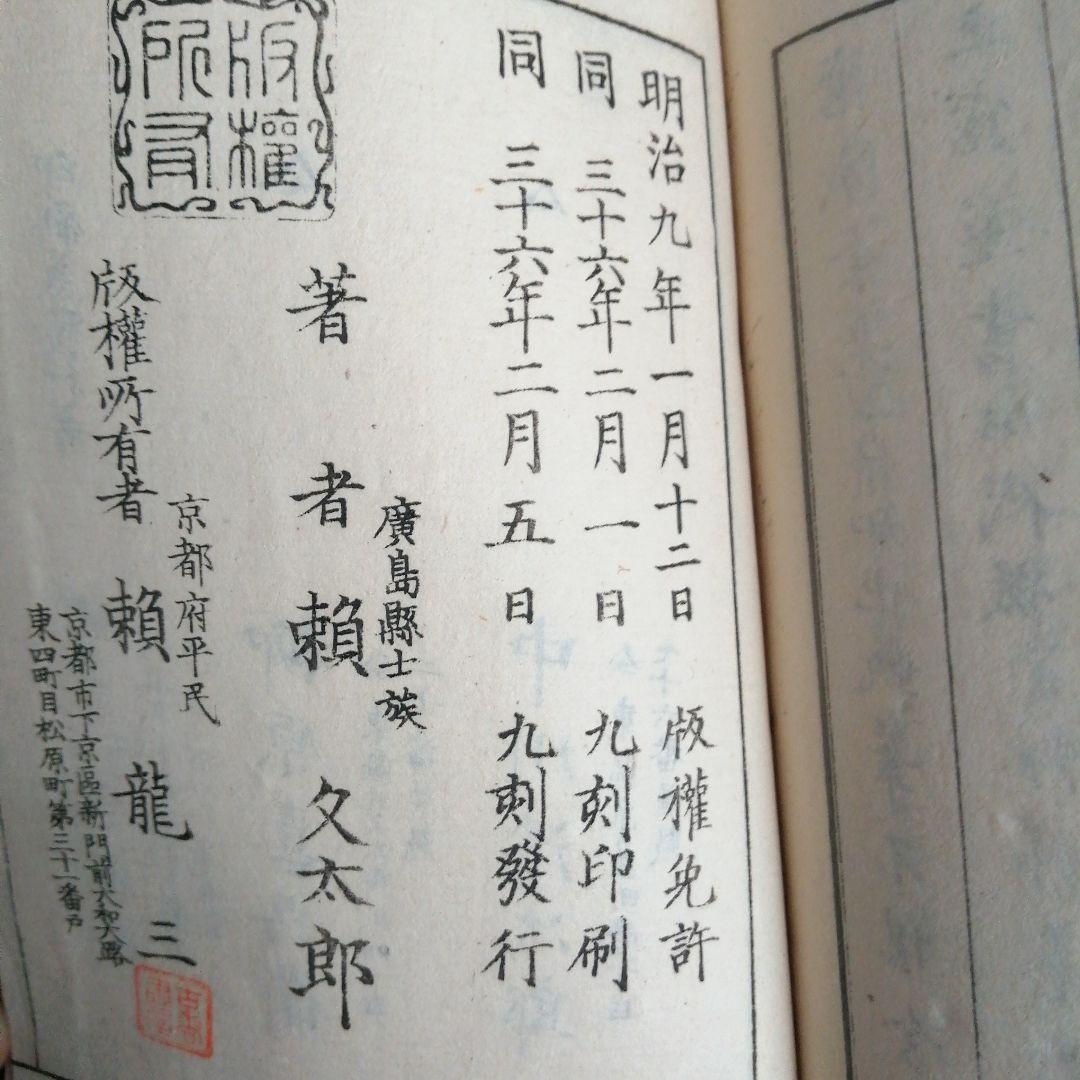 明治九年一月十二日 版權免許
同 三十六年二月一日 九刻印刷
同 三十六年二月五日 九刻發行
廣島縣士族
著者 賴 久太郎
版權所有
京都府平民
版權所有者 賴 龍三
京都市下京區新門前大和大路
東四町目松原町第三十一番戸